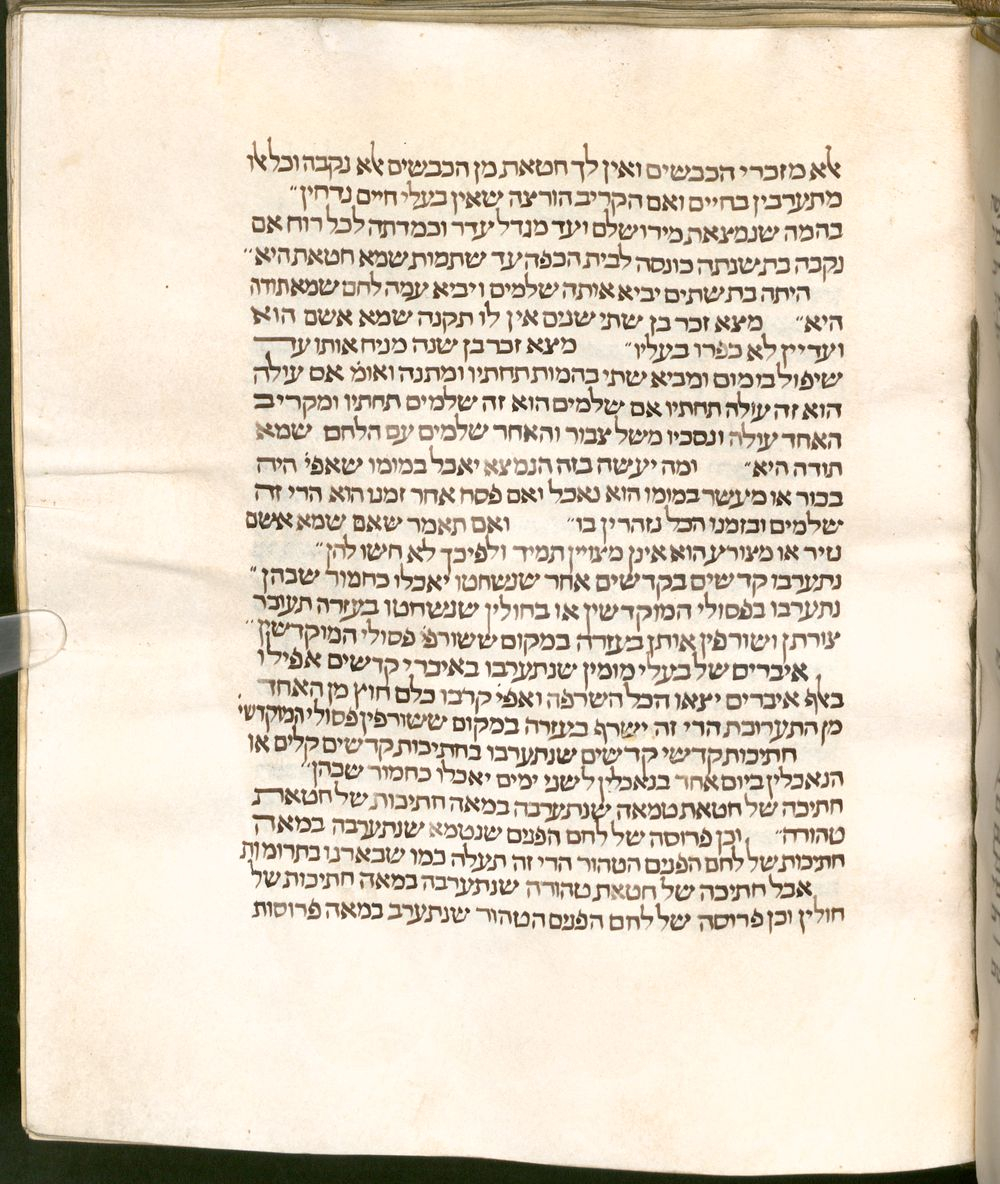 אלא מזכרי הכבשים ואין לך חטאת מן הכבשים אלא נקבה וכל אלו
מתערבין בחיים ואם הקריב הורצה שאין בעלי חיים נדחין״
בהמה שנמצאת מירושלם ועד מגדל עדר וכמדתה לכל רוח אם
נקבה בת שנתה כונסה לבית הכפה עד שתמות שמא חטאת היא״
היתה בת שתים יביא אותה שלמים ויביא עמה לחם שמא תודה
היא״ מצא זכר בן שתי שנים אין לו תקנה שמא אשם הוא
ועדיין לא כפרו בעליו״ מצא זכר בן שנה מניח אותו עד
שיפול בו מום ומביא שתי בהמות תחתיו ומתנה ואומ׳ אם עולה
הוא זה עולה תחתיו אם שלמים הוא זה שלמים תחתיו ומקריב
האחד עולה ונסכיו משל צבור והאחר שלמים עם הלחם שמא
תודה היא״ ומה יעשה בזה הנמצא יאכל במומו שאפי׳ היה
בכור או מעשר במומו הוא נאכל ואם פסח אחר זמנו הוא הרי זה
שלמים ובזמנו הכל נזהרין בו״ ואם תאמר שאם שמא אשם
נזיר או מצורע הוא אינן מצויין תמיד ולפיכך לא חשו להן״
נתערבו קדשים בקדשים אחר שנשחטו יאכלו כחמור שבהן״
נתערבו בפסולי המוקדשין או בחולין שנשחטו בעזרה תעובר
צורתן וישורפין אותן בעזרה במקום ששורפי׳ פסולי המוקדשין״
איברים של בעלי מומין שנתערבו באיברי קדשים אפילו
באלף איברים יצאו הכל השרפה ואפי׳ קרבו כלם חוץ מן האחד
מן התערובת הרי זה ישרף בעזרה במקום ששורפין פסולי המוקדשי׳
חתיכות קדשי קדשים שנתערבו בחתיכות קדשים קלים או
הנאכלין ביום אחד בנאכלין לשני ימים יאכלו כחמור שבהן״
חתיכה של חטאת טמאה שנתערבה במאה חתיכות של חטאת
טהורה״ וכן פרוסה של לחם הפנים שנטמא שנתערבה במאה
חתיכות של לחם הפנים הטהור הרי זה תעלה כמו שבארנו בתרומות
אבל חתיכה של חטאת טהורה שנתערבה במאה חתיכות של
חולין וכן פרוסה של לחם הפנים הטהור שנתערב במאה פרוסות